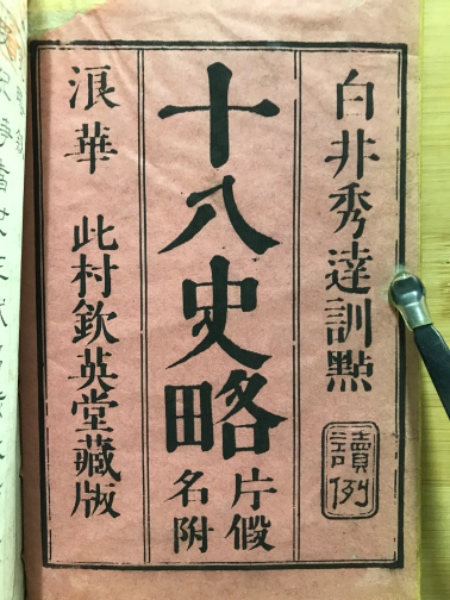 白井秀達訓點
讀例
十八史略
片假
名附
浪華 此村欽英堂藏版